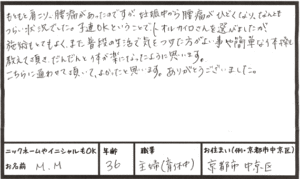 もともと肩こり、腰痛があったのですが、妊娠中から腰痛がひどくなり、なんとも
つらい状況でした。子連れOKということで、オルガイロさんを選びましたが
施術もしてもよく、また普段の生活で気をつけた方がよい事や簡単な体操も
教えて頂き、だんだんとうずが楽になったように思います。
こちらに通わせて頂いて、よかったと思います。ありがとうございました。
ニックネームやイニシャルもOK
お名前 M.M
年齢 36
職業 主婦(育休中)
お住まい(例・京都市中京区)
京都市 中京区